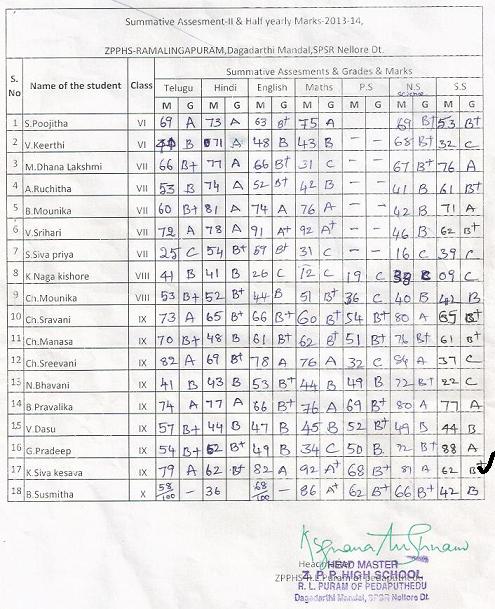 Summative Assesment-II & Half yearly Marks-2013-14,
ZPPHS-RAMALINGAPURAM,Dagadarthi Mandal,SPSR Nellore Dt.
S. No Name of the student Class Summative Assesments & Grades & Marks
Telugu Hindi English Maths P.S N.S science S.S
M G M G M G M G M G M G M G
1 S.Poojitha VI 69 A 73 A 63 B+ 75 A 69 B+ 53 B+
2 V.Keerthi VI B 71 A 48 B 43 B - - 68 B+ 32 C
3 M.Dhana Lakshmi VII 66 B+ 77 A 66 B+ 31 C - - 67 B+ 76 A
4 A.Ruchitha VII 53 B 74 A 52 B+ 42 B - - 41 B 61 B+
5 B.Mounika VII 60 B+ 81 A 74 A 76 A - - 42 B 71 A
6 V.Srihari VII 72 A 78 A 91 A+ 92 A+ - - 46 B 62 B+
7 S.Siva priya VII 25 C 54 B+ 59 B+ 31 C - - 16 C 39 C
8 K Naga kishore VIII 41 B 41 B 26 C 12 C 19 C 09 C
9 Ch.Mounika VIII 53 B+ 52 B+ 44 B 51 B+ 36 C 40 B 42 B
10 Ch.Sravani IX 73 A 65 B+ 66 B+ 60 B+ 54 B+ 80 A 65 B+
11 Ch.Manasa IX 70 B+ 48 B 61 B+ 62 B+ 51 B+ 76 B+ 61 B+
12 Ch.Sreevani IX 82 A 69 B+ 78 A 76 A 32 C 84 A 37 C
13 N.Bhavani IX 41 B 43 B 53 B+ 44 B 49 B 72 B+ 22 C
14 B Pravalika IX 74 A 77 A 66 B+ 76 A 69 B+ 80 A 77 A
15 V.Dasu IX 57 B+ 44 B 47 B 45 B 52 B+ 49 B 44 B
16 G.Pradeep IX 54 B+ 62 B+ 49 B 34 C 50 B 72 B+ 88 A
17 K.Siva kesava IX 79 A 62 B+ 82 A 92 A+ 68 B+ 81 A 62 B+
18 B.Susmitha X 58/100 - 36 68/100 - 86 A+ 62 B+ 66 B+ 42 B
HEAD MASTER
Z. P. P. HIGH SCHOOL
R. L. PURAM OF PEDAPUTHEDU
Dagadarthi Mandal, SPSR Nellore Dt.